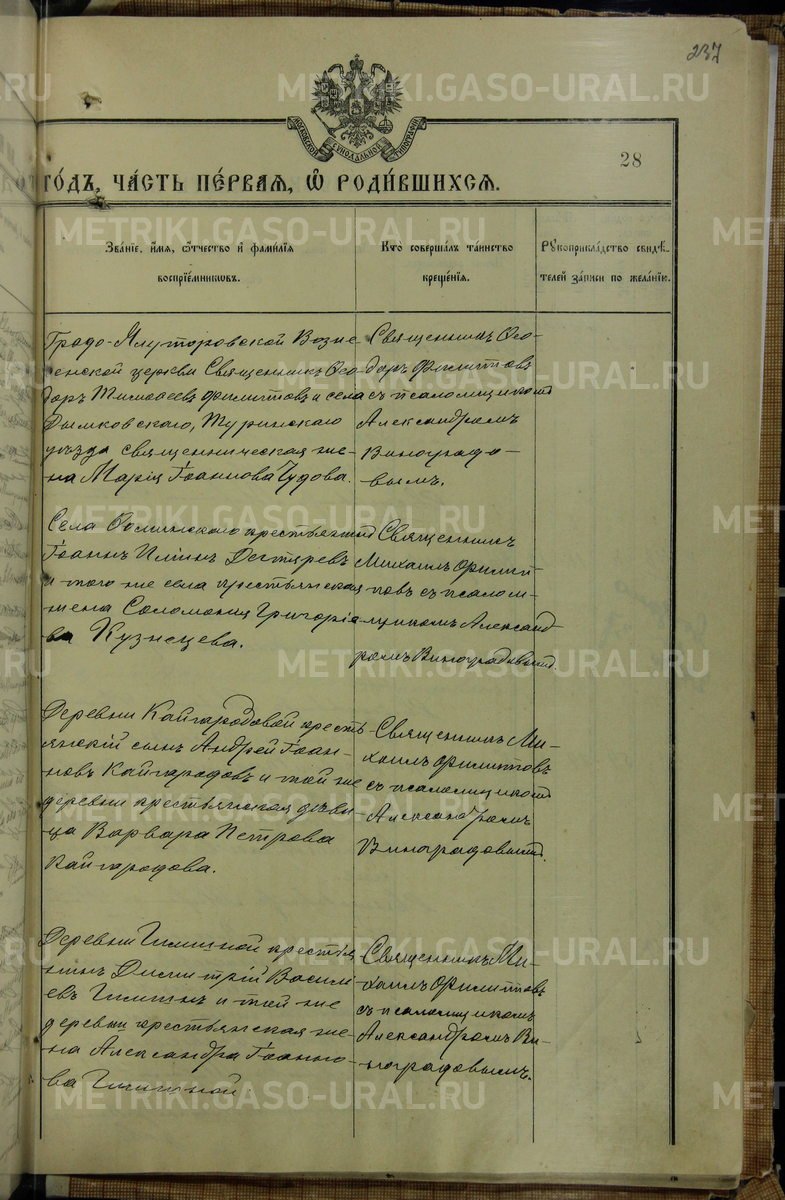 237
МОСКОВСКОЙ СѴНОДАЛЬНОЙ ТИПОГРАФІИ
28
го́дъ, ча́сть пе́рвая, ѡ҆ роди́вшихсѧ.
Зва́ніе, и҆́мя, ѻ҆́тчество и҆ фами́лія
воспріе́мниковъ.
Кто̀ соверша́лъ та́инство
креще́нія.
Рꙋкоприкла́дство свидѣ́-
телей за́писи по жела́нію.
Градо-Ялуторовской Возне-
сенской церкви Священникъ Ѳео-
доръ Тимоѳеевъ Филипповъ и села
Дымковскаго, Туринскаго
уѣзда священническая же-
на Марія Іоаннова Чудова.
Священникъ Ѳео-
доръ Филипповъ
съ псаломщикомъ
Александромъ
Виноградо-
вымъ.
Села крестьянинъ
Іоаннъ Ильинъ Дегтяревъ
и того же села крестьянская
жена Соломонія Григоріе-
ва Кузнецева.
Священникъ
Михаилъ Филип-
повъ съ псалом-
щикомъ Александ-
ромъ Виноградовымъ.
Деревни Кайгародовой кресть-
янскій сынъ Андрей Іоан-
новъ Кайгародовъ и той же
деревни крестьянская дѣви-
ца Варвара Петрова
Кайгародова.
Священникъ Ми-
хаилъ Филипповъ
съ псаломщикомъ
Александромъ
Виноградовымъ.
Деревни крестья-
нинъ Димитрій Василі-
евъ и той же
деревни крестьянская же-
на Александра Іоанно-
ва
Священникъ Ми-
хаилъ Филипповъ
съ псаломщикомъ
Александромъ Ви-
ноградовымъ.
METRIKI.GASO-URAL.RU